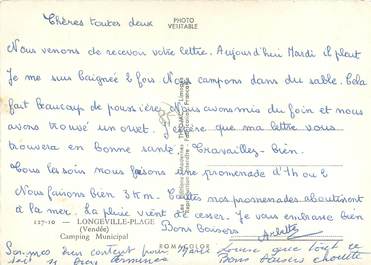 Chères toutes deux
PHOTO
VERITABLE
Nous venons de recevoir votre lettre. Aujourd'hui Mardi il pleut
Je me suis baignée 2 fois Nous campons dans du sable. Cela
fait beaucoup de poussière. Nous avons mis du foin et nous
avons trouvé un orvet. J'espère que ma lettre vous
trouvera en bonne santé. Travaillez-bien.
Tous les soirs nous faisons une promenade d'1h ou 2
Nous faisons bien 3 km. Toutes nos promenades aboutissent
117-10 - LONGEVILLE-PLAGE
à la mer. La pluie vient de cesser. Je vous embrasse bien
(Vendée)
Camping Municipal
Bons baisers
Arlette
ROMACOLOR
que tout ce
Bons baisers chouette